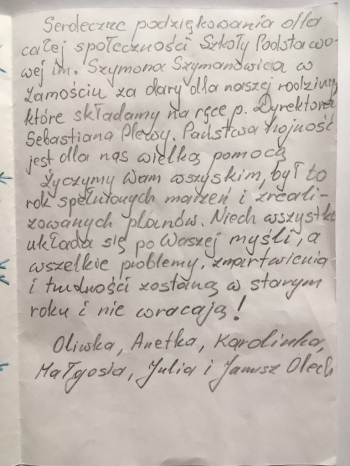 Serdeczne podziękowania dla
całej społeczności Szkoły Podstawo-
wej im. Szymona Szymonowica w
Zamościu za dary dla naszej rodziny,
które składamy na ręce p. Dyrektora
Sebastiana Pleby. Państwa hojność
jest dla nas wielką pomocą
Życzymy Wam wszyskim, był to
rok spełnionych marzeń i zreali-
zowanych planów. Niech wszystko
układa się po Waszej myśli, a
wszelkie problemy, zmartwienia
i trudności zostaną w starym
roku i nie wracają!
Oliwka, Anetka, Karolinka,
Małgosia, Julia i Janusz Olech